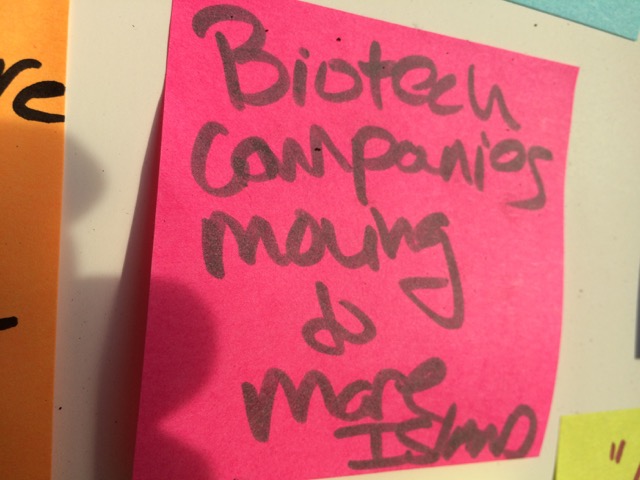 Biotech
companies
moving
to
Mare
Island